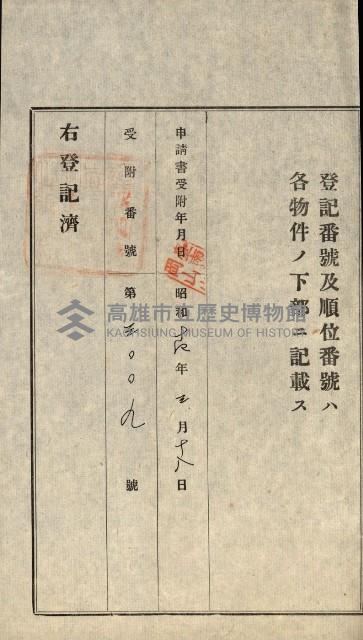 登記番號及順位番號ハ
各物件ノ下部ニ記載ス
申請書受附年月日 昭和 年 月十八日
受附番號 第 〇〇九號
右登記濟
高雄市立歷史博物館
KAOHSIUNG MUSEUM OF HISTORY